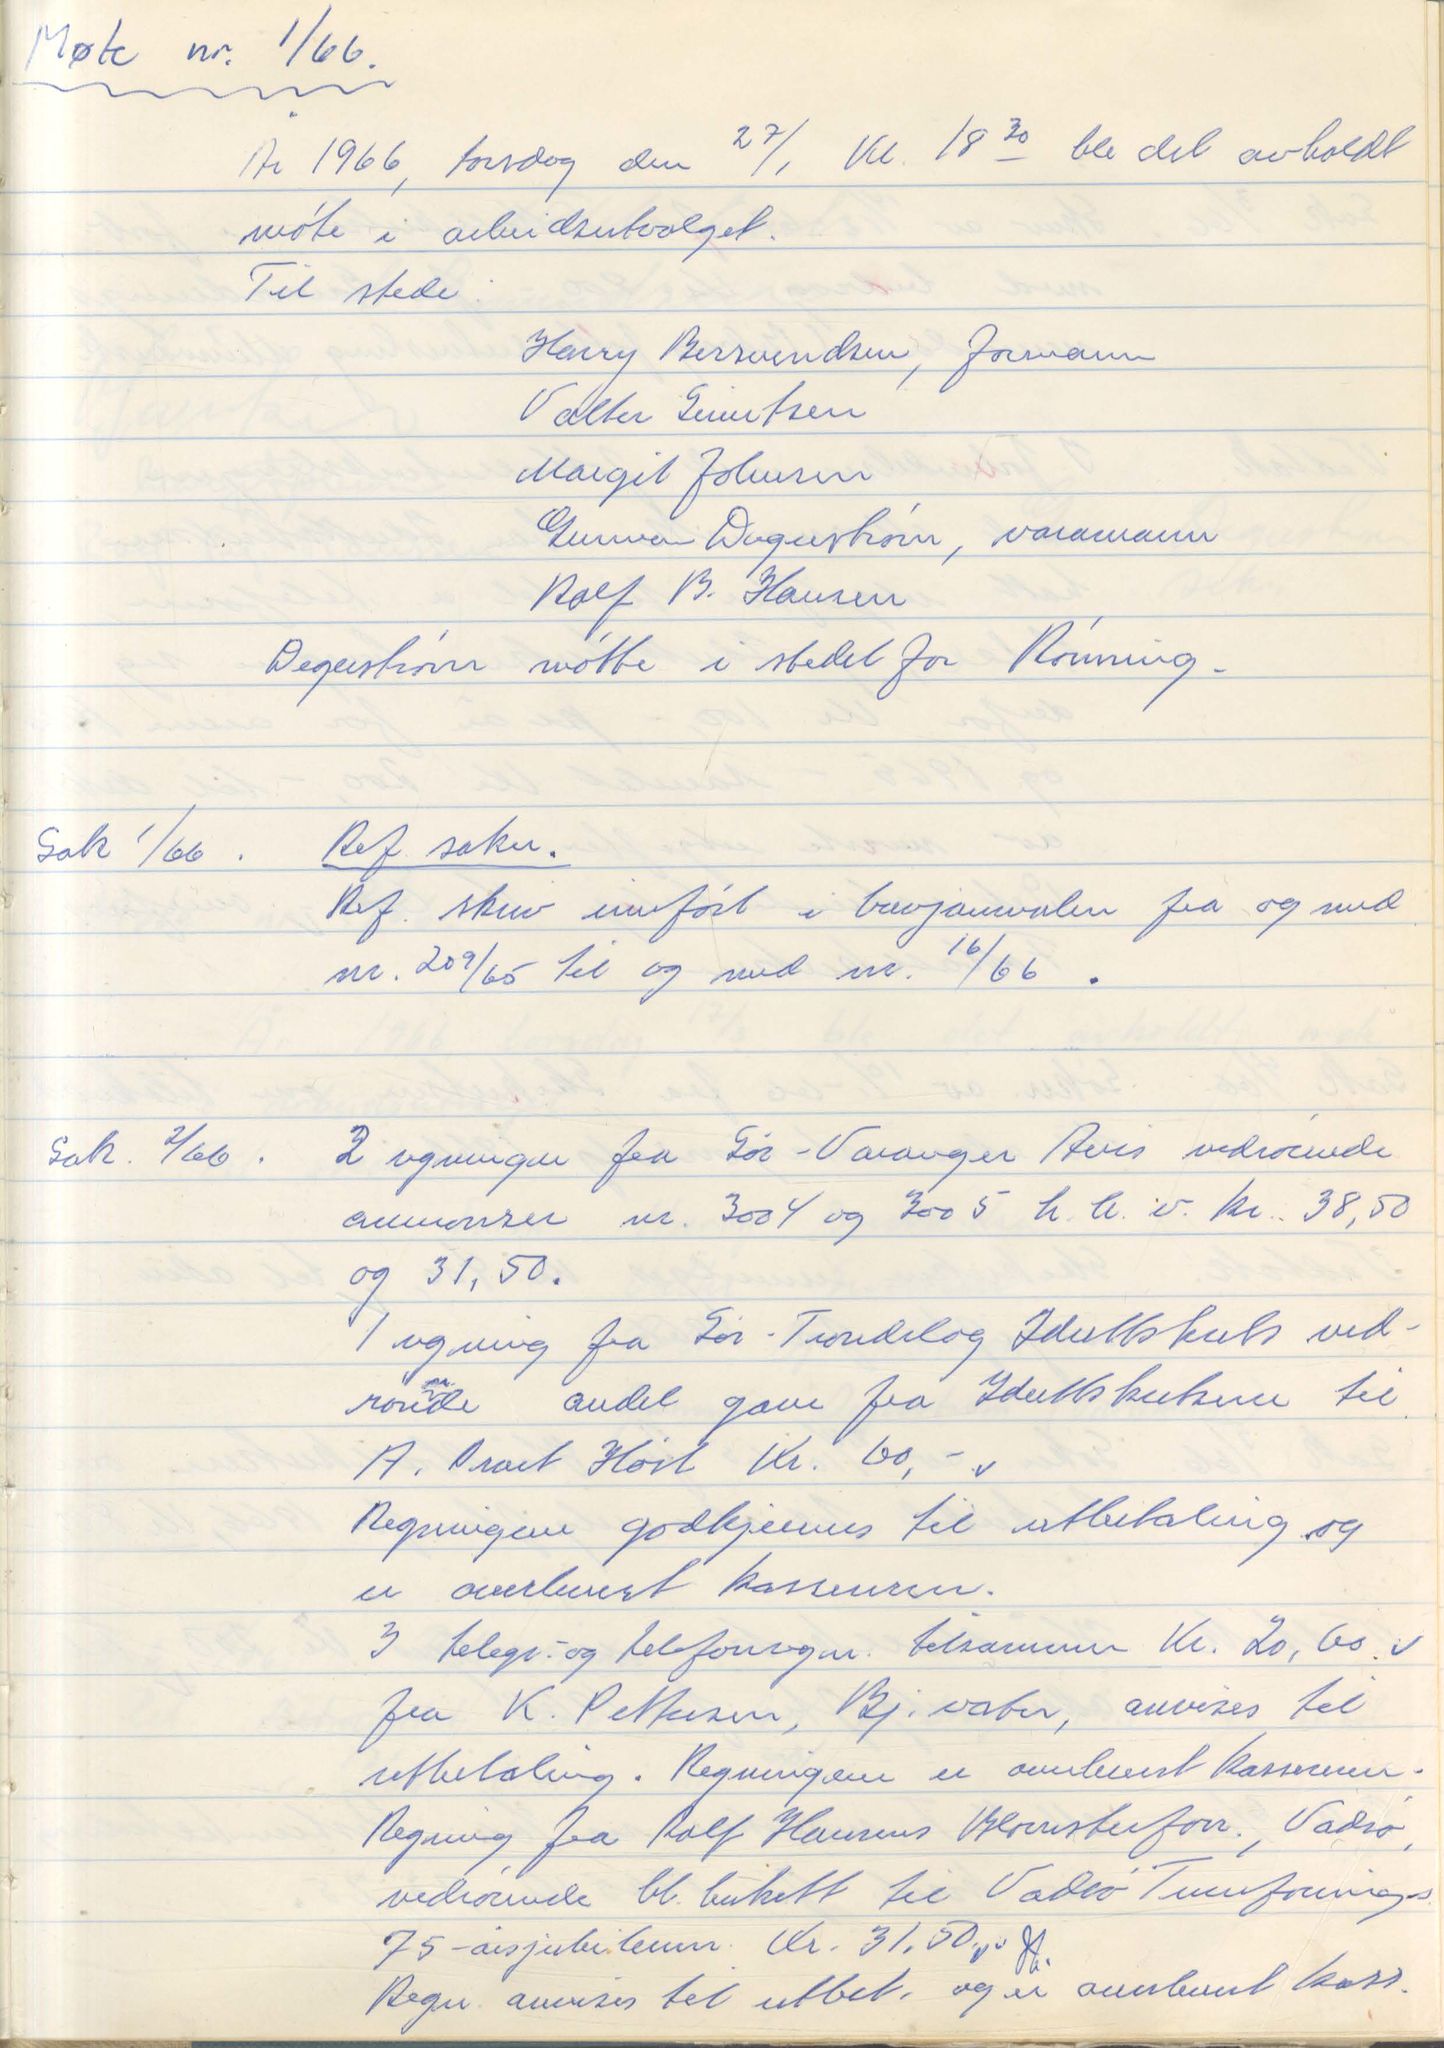 Møte nr. 1/66.
År 1966, torsdag den 27/1 kl. 18 30 ble det avholdt
møte i arbeidsutvalget.
Til stede:
Harry Bersvendsen, formann
Valter Gerhartsen
Margit Johnsen
Gunnar Degerstrøm, varamann
Rolf B. Hansen
Degerstrøm møtte i stedet for Rønning.
Sak 1/66. Ref. saker.
Ref. skriv innført i brevjournalen fra og med
nr. 209/65 til og med nr. 16/66.
Sak. 2/66. 2 regninger fra Sør-Varanger Avis vedrørende
annonser nr. 3004 og 3005 h.h.v. kr. 38,50
og 31,50.
1 regning fra Sør-Trøndelag Idrettskrets ved-
rørende andel gave fra Idrettskretsene til
A. Proet Høst Kr. 60,-
Regningene godkjennes til utbetaling og
er overlevert kassereren.
3 telegr.- og telefonregn. tilsammen Kr. 20,60
fra K. Pettersen, Bj.vatn, anvises til
utbetaling. Regningene er overlevert kassereren.
Regning fra Rolf Hansens Blomsterforr., Vadsø,
vedrørende bl. bukett til Vadsø Turnforenings
75-årsjubileum. Kr. 31,50.
Regn. anvises til utbet. og er overlevert kass.